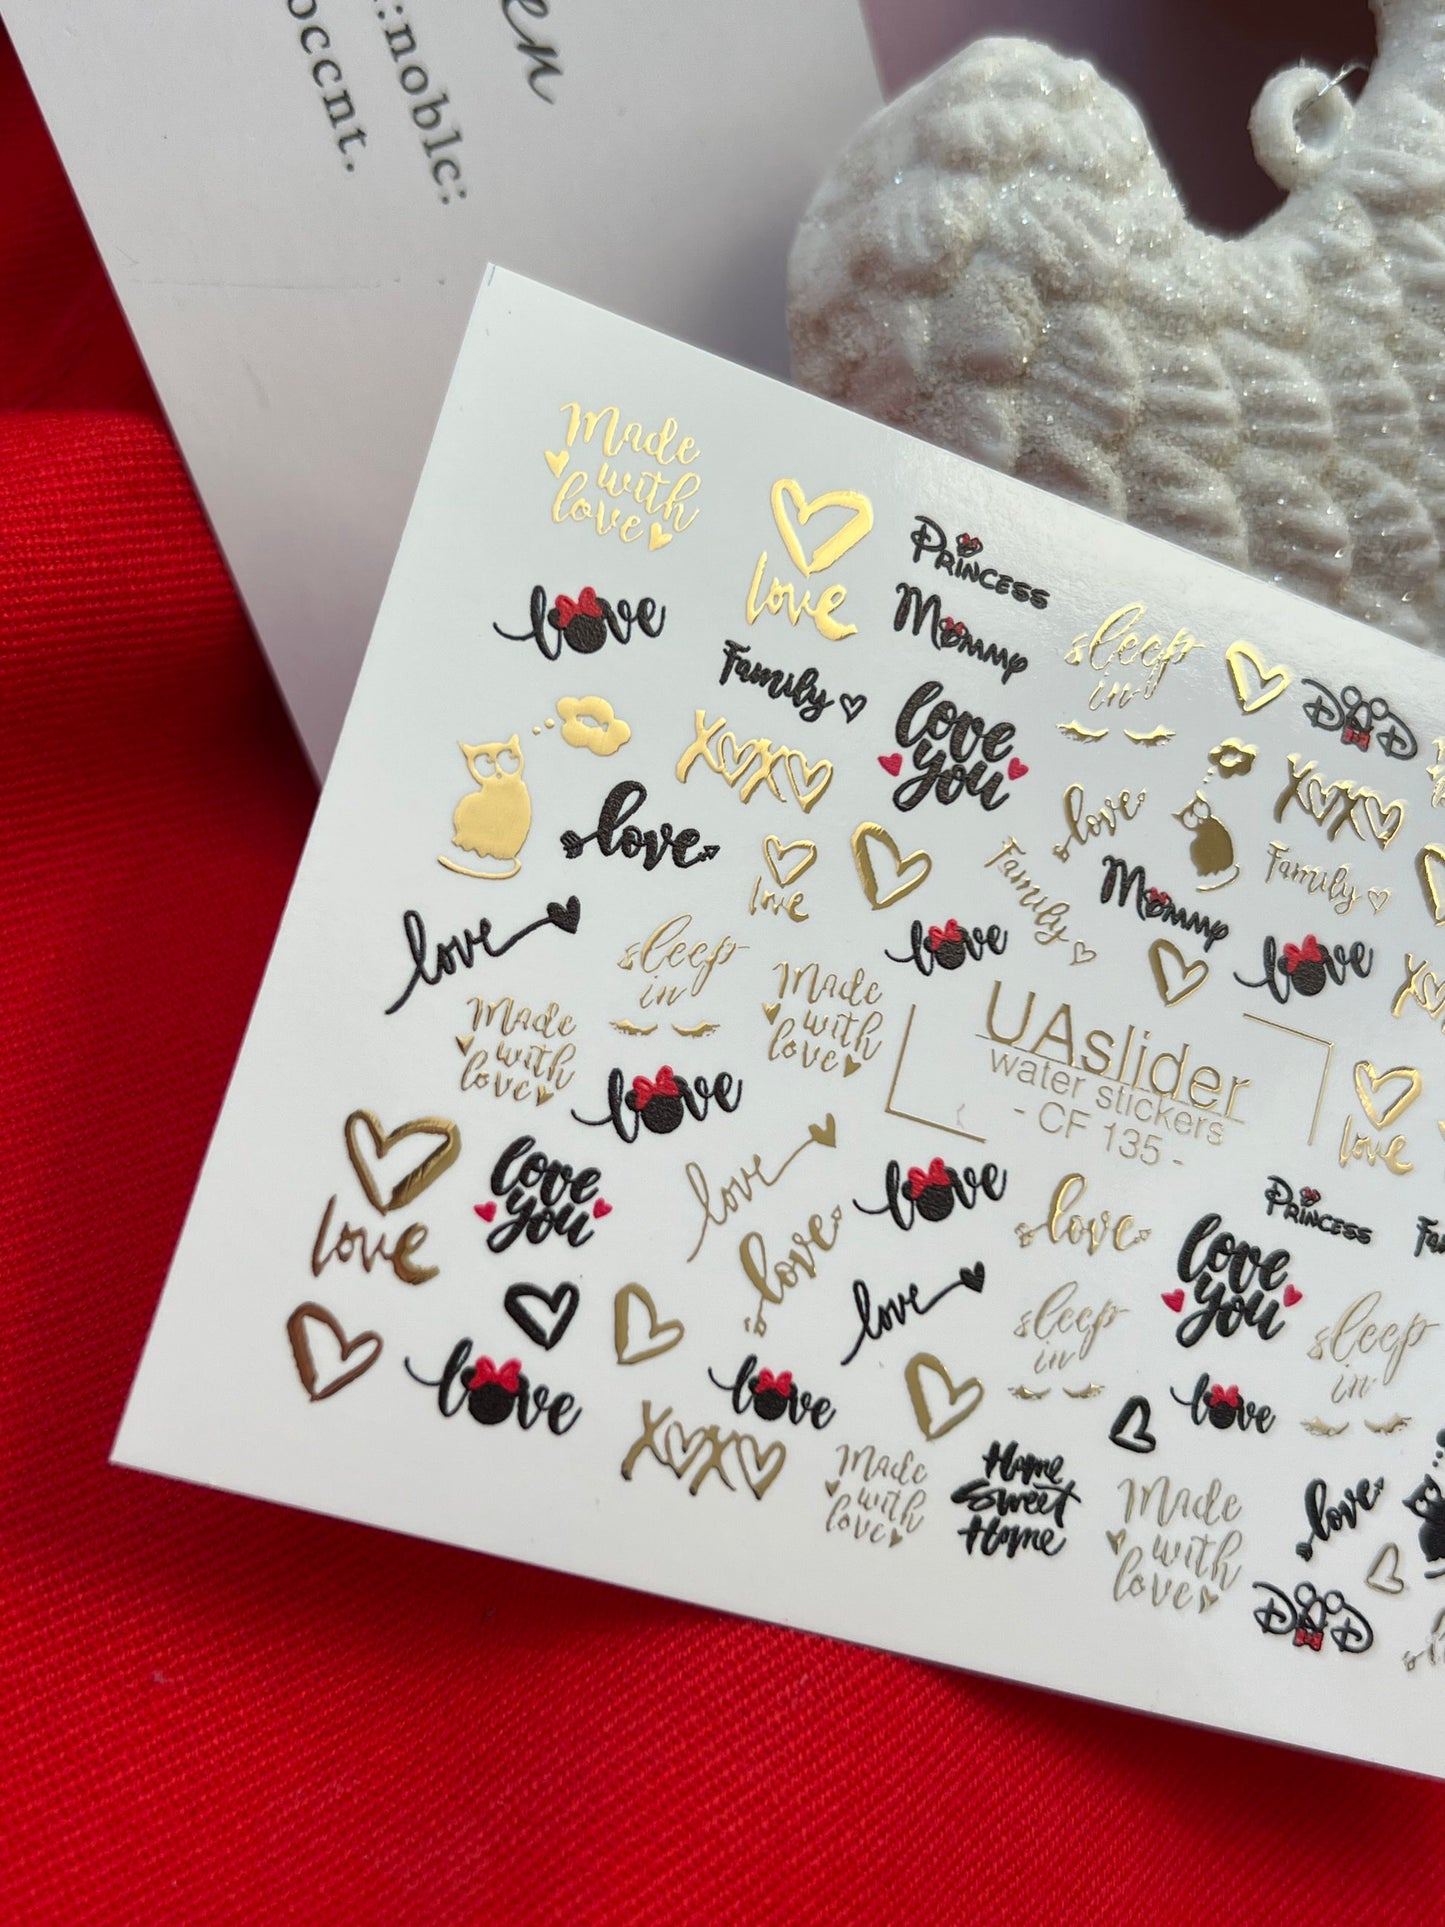 en
:noble:
occnt.
Made
with
love
love
Princess
Mommy
love
Family
sleep
in
DAD
love
you
XOXO
love
love
XOXO
Family
Mommy
Family
love
love
love
love
sleep
in
Made
with
love
Made
with
love
UAslider
water stickers
- CF 135 -
love
love
love
love
you
love
love
love
love
Princess
love
you
love
sleep
in
sleep
in
love
love
love
XOXO
Made
with
love
Home
Sweet
Home
Made
with
love
love
DAD